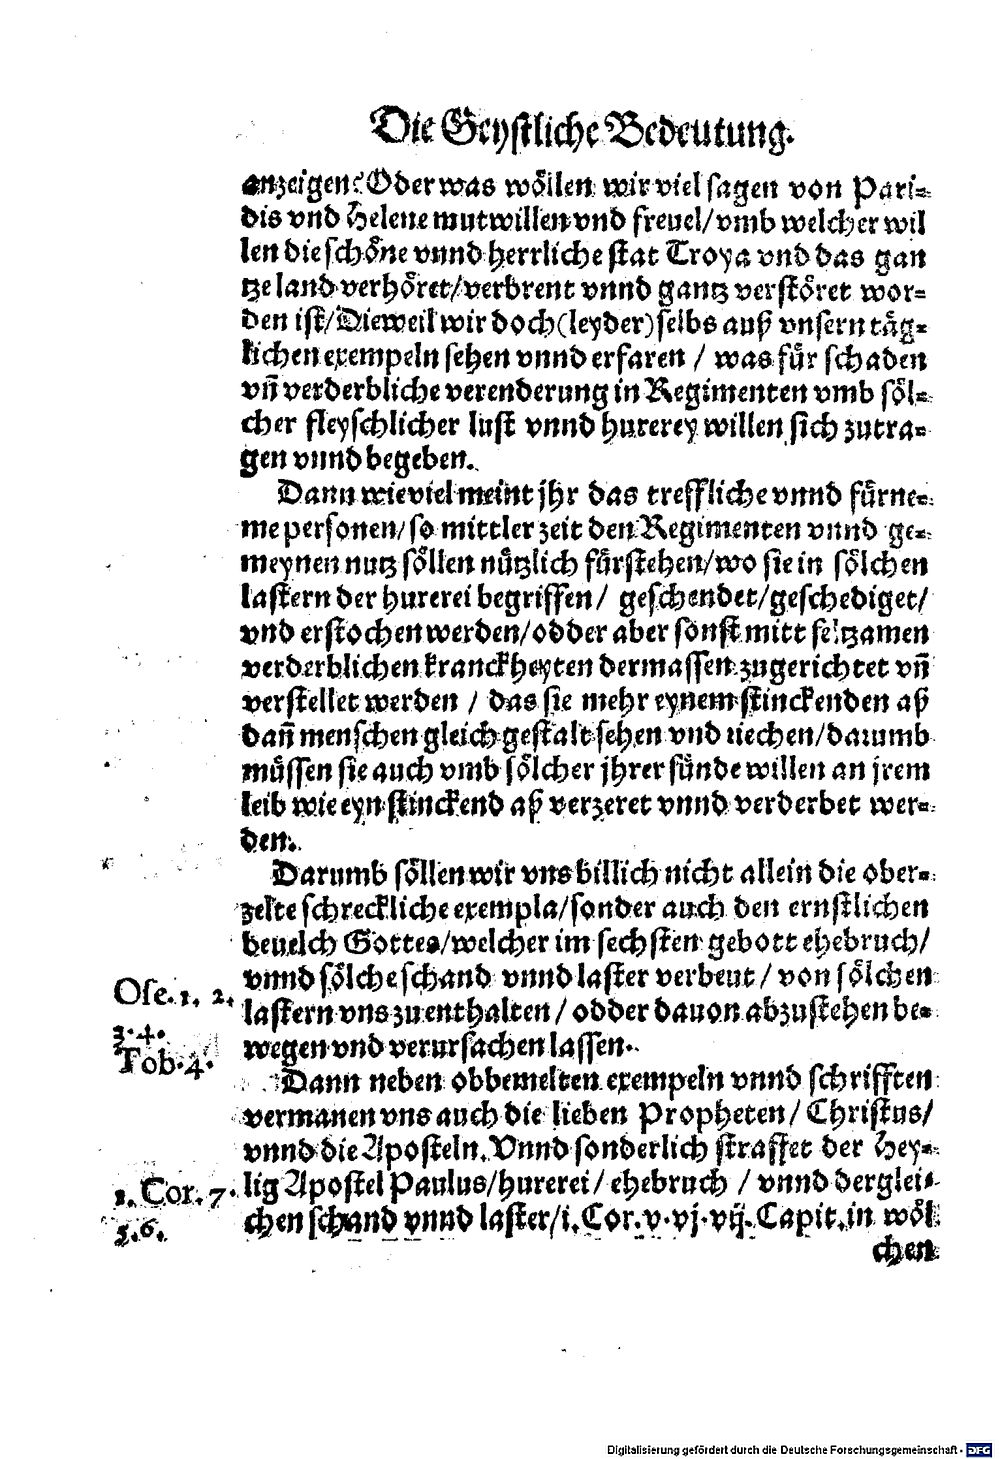 Die Geystliche Bedeutung.
anzeigen? Oder was wöllen wir viel sagen von Pari-
dis vnd Helene mutwillen vnd freuel/vmb welcher wil
len die schöne vnnd herrliche stat Troya vnd das gan
tze land verhöret/verbrent vnnd gantz verstöret wor-
den ist/Dieweil wir doch (leyder) selbs auß vnsern täg-
lichen exempeln sehen vnnd erfaren / was für schaden
vñ verderbliche verenderung in Regimenten vmb söl-
cher fleyschlicher lust vnnd hurerey willen sich zutra-
gen vnnd begeben.
Dann wieviel meint jhr das treffliche vnnd fürne-
me personen/so mittler zeit den Regimenten vnnd ge-
meynen nutz söllen nützlich fürstehen/wo sie in sölchen
lastern der hurerei begriffen/ geschendet/geschediget/
vnd erstochen werden/odder aber sonst mitt seltzamen
verderblichen kranckheyten dermassen zugerichtet vñ
verstellet werden / das sie mehr eynem stinckenden aß
dañ menschen gleich gestalt sehen vnd riechen/darumb
müssen sie auch vmb sölcher jhrer sünde willen an jrem
leib wie eyn stinckend aß verzeret vnnd verderbet wer-
den.
Darumb söllen wir vns billich nicht allein die ober-
zelte schreckliche exempla/sonder auch den ernstlichen
beuelch Gottes/welcher im sechsten gebott ehebruch/
vnnd sölche schand vnnd laster verbeut / von sölchen
Ose. 1. 2.
lastern vns zu enthalten / odder dauon abzustehen be-
3. 4.
wegen vnd verursachen lassen.
Tob. 4.
Dann neben obbemelten exempeln vnnd schrifften
vermanen vns auch die lieben Propheten/ Christus/
vnnd die Aposteln. Vnnd sonderlich straffet der Hey-
lig Apostel Paulus/hurerei/ ehebruch / vnnd derglei-
1. Cor. 7.
chen schand vnnd laster/i. Cor. v. vj. vij. Capit. in wöl
5. 6.
chen
Digitalisierung gefördert durch die Deutsche Forschungsgemeinschaft - DFG